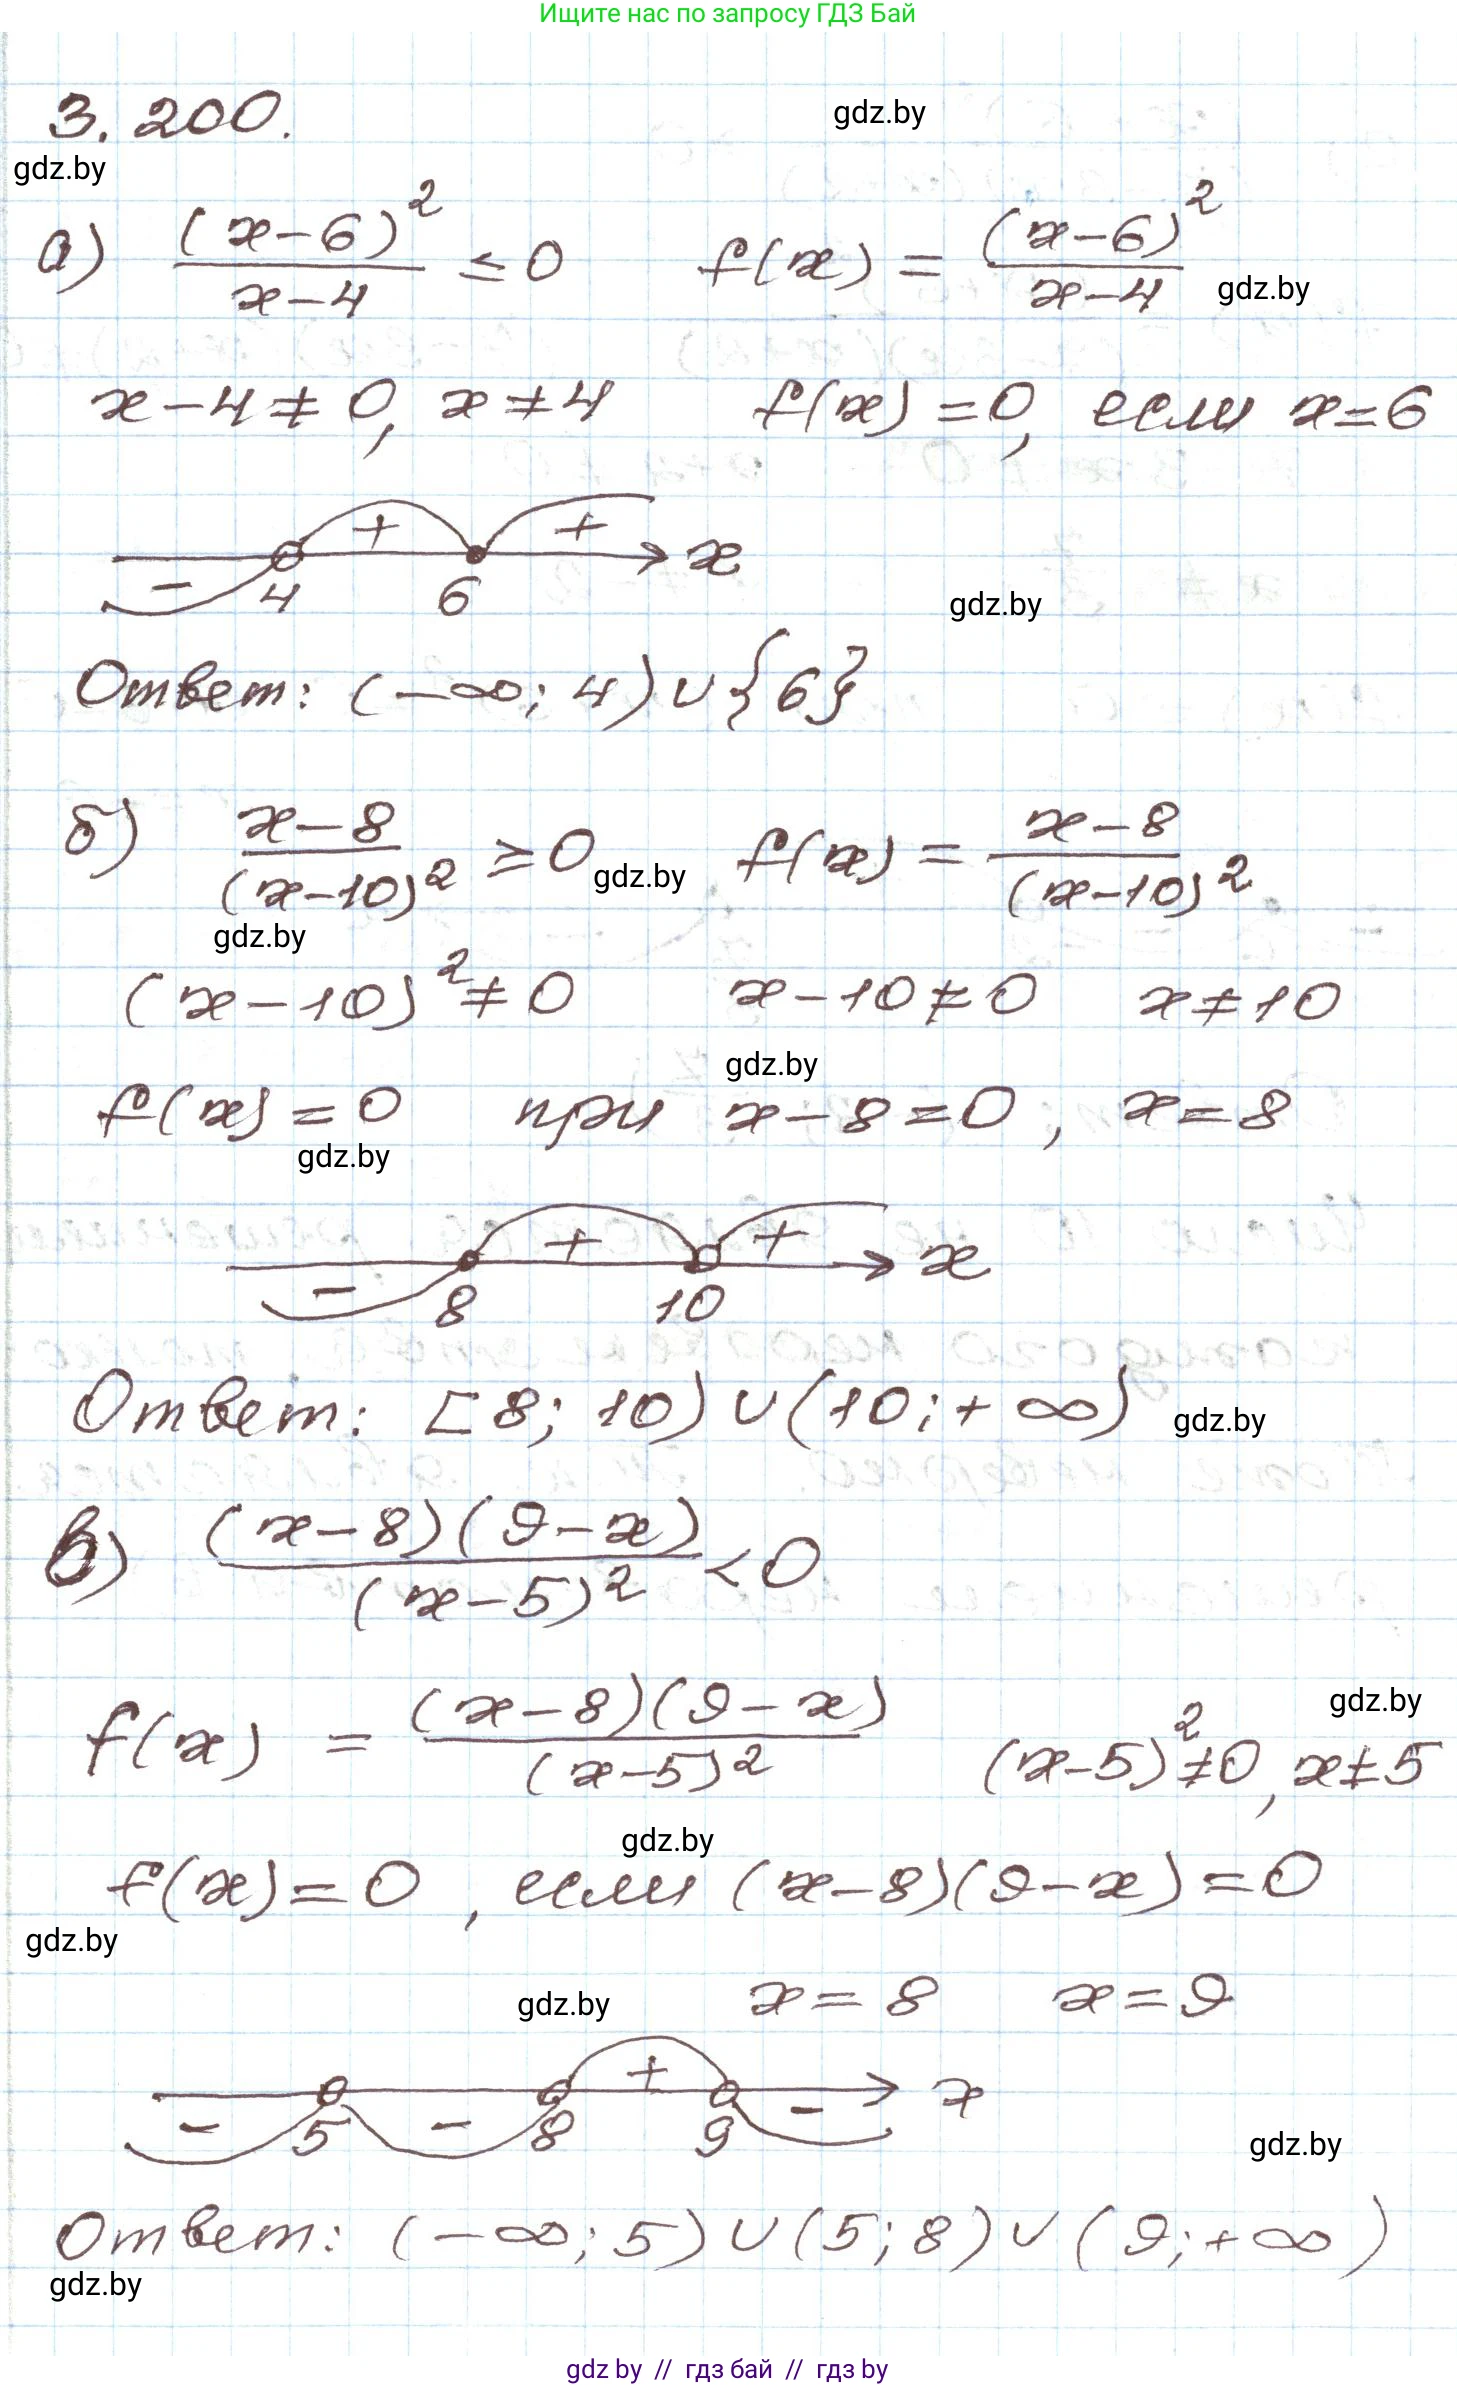 Ищите нас по запросу ГДЗ Бай
3.200.
gdz.by
gdz.by
а) (x-6)²/(x-4) ≤ 0 f(x) = (x-6)²/(x-4)
gdz.by
x-4≠0, x≠4 f(x)=0, если x=6
- + + x
4 6
gdz.by
Ответ: (-∞; 4)∪{6}
б) (x-8)/(x-10)² ≥ 0 f(x) = (x-8)/(x-10)²
gdz.by
gdz.by
(x-10)²≠0 x-10≠0 x≠10
gdz.by
f(x)=0 при x-8=0, x=8
gdz.by
- + + x
8 10
Ответ: [8; 10)∪(10;+∞)
gdz.by
в) (x-8)(9-x)/(x-5)² < 0
f(x) = (x-8)(9-x)/(x-5)² (x-5)²≠0, x≠5
gdz.by
gdz.by
f(x)=0, если (x-8)(9-x)=0
gdz.by
gdz.by
x=8 x=9
- - + - x
5 8 9
gdz.by
Ответ: (-∞; 5)∪(5; 8)∪(9;+∞)
gdz.by
gdz by // гдз бай // гдз by